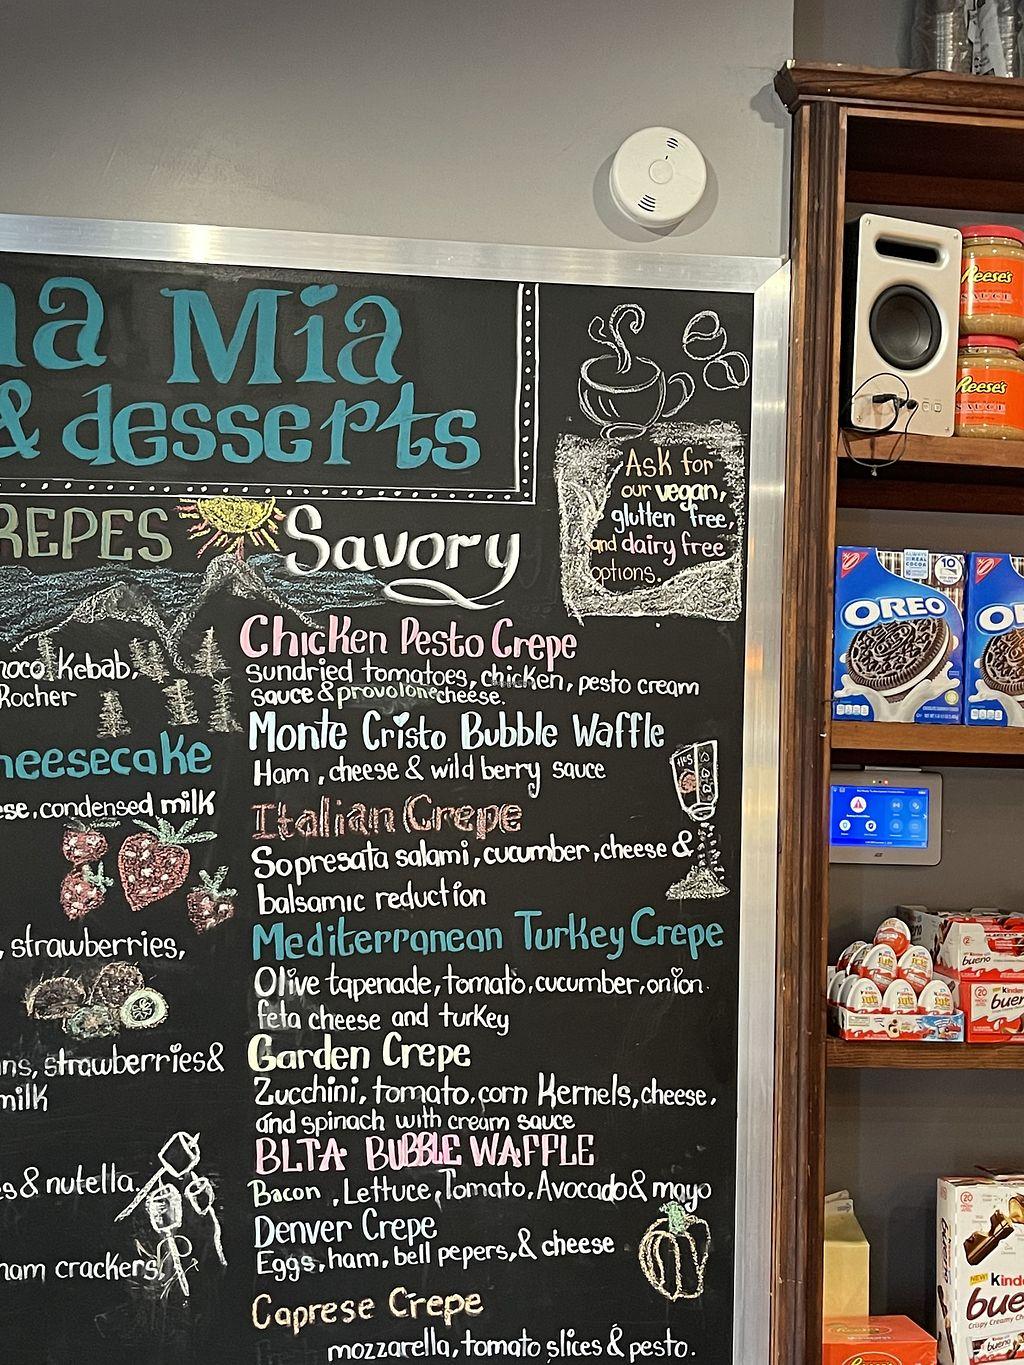 Mia
& desserts
CREPES
Savory
Ask for
our vegan,
glutten free,
and dairy free
options.
Chicken Pesto Crepe
sundried tomatoes, chicken, pesto cream
sauce & provolone cheese.
Monte Cristo Bubble Waffle
Ham, cheese & wild berry sauce
Italian Crepe
Sopresata salami, cucumber, cheese &
balsamic reduction
Mediterranean Turkey Crepe
Olive tapenade, tomato, cucumber, onion
feta cheese and turkey
Garden Crepe
Zucchini, tomato, corn kernels, cheese,
and spinach with cream sauce
BLTA BUBBLE WAFFLE
Bacon, Lettuce, Tomato, Avocado & mayo
Denver Crepe
Eggs, ham, bell pepers, & cheese
Caprese Crepe
mozzarella, tomato slices & pesto.
Kebab,
Rocher
heesecake
condensed milk
, strawberries,
strawberries &
milk
& nutella.
crackers,
Reese's
SAUCE
Reese's
SAUCE
OREO
OREO
bueno
Kinder
bueno
NEW! Kinder
bueno
Crispy Creamy